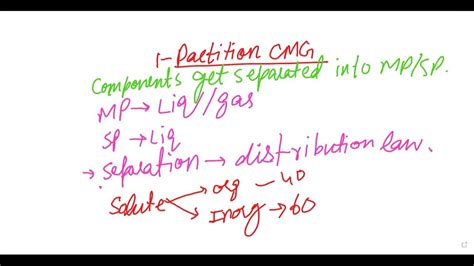 1- Partition CMG
Components get separated into MP/SP.
MP → Liq/gas
SP → Liq
→ separation → distribution law.
Solute → org - 40
→ Inorg → 60